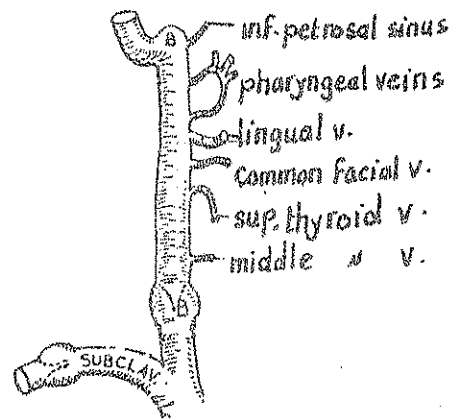 B
inf. petrosal sinus
pharyngeal veins
lingual v.
common facial v.
sup. thyroid v.
middle 〃 v.
B
SUBCLAV.